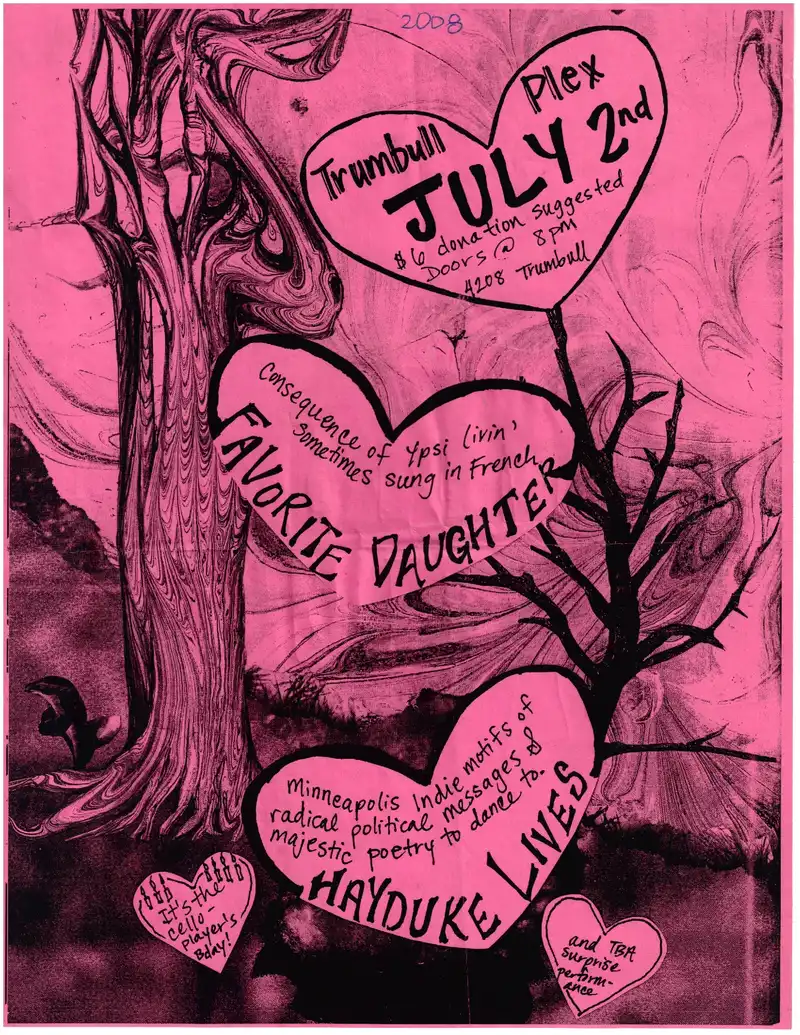 2008
Trumbull Plex
JULY 2nd
$6 donation suggested
Doors @ 8pm
4208 Trumbull
Consequence of Ypsi livin'
sometimes sung in French
FAVORITE DAUGHTER
Minneapolis Indie motifs of
radical political messages &
majestic poetry to dance to.
HAYDUKE LIVES
It's the
cello-
player's
Bday!
and TBA
surprise
perform-
ance